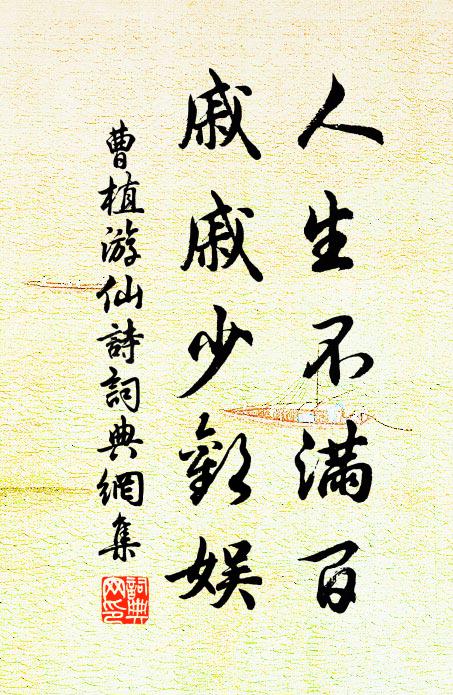 人生不滿百
戚戚少歡娛
曹植游仙詩詞典網集
詞典網印